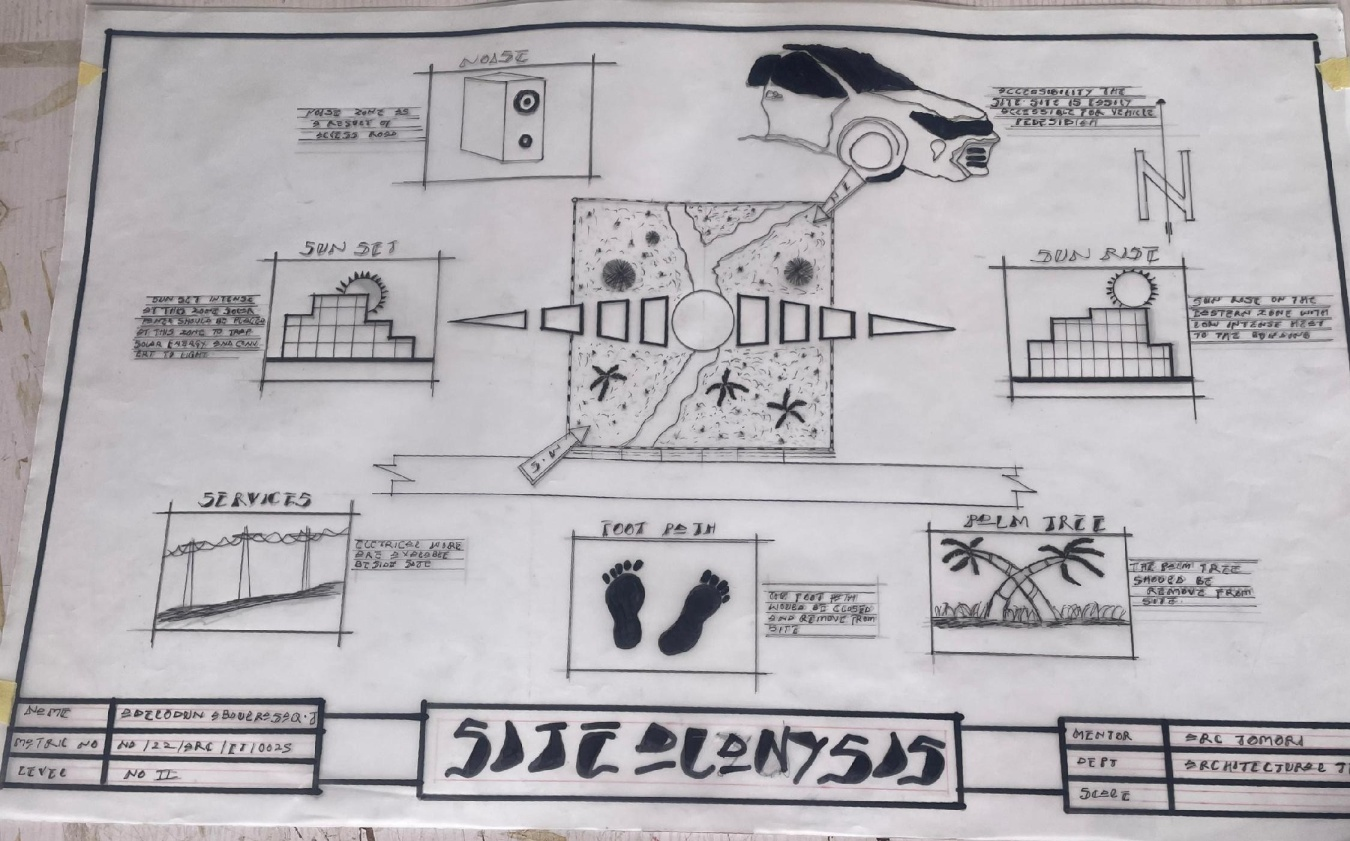 NOISE
NOISE ZONE AS
A RESULT OF
ACCESS ROAD
ACCESSIBILITY THE
SITE SITE IS EASILY
ACCESSIBLE FOR VEHICLE
PEDESTRIAN
N
N.E
SUN SET
SUN SET INTENSE
AT THIS ZONE SOLAR
PANER SHOULD BE PLACED
AT THIS ZONE TO TRAP
SOLAR ENERGY AND CONV
ERT TO LIGHT
SUN RISE
SUN RISE ON THE
EASTERN ZONE WITH
LOW INTENSE HEAT
TO THE BUILDING
S.W
SERVICES
ELCTRICAL WIRE
ARE AVALABLE
BESIDE SITE
FOOT PATH
THE FOOT PATH
WOULD BE CLOSED
AND REMOVE FROM
SITE
PALM TREE
THE PALM TREE
SHOULD BE
REMOVE FROM
SITE.
NAME
ADELODUN ABDULRASAQ.
METRIC NO
ND/22/ARC/FT/0025
LEVEL
ND II
SITE ALANYSIS
MENTOR
ARC TOMORI
DEPT
ARCHITECTURAL
SCALE